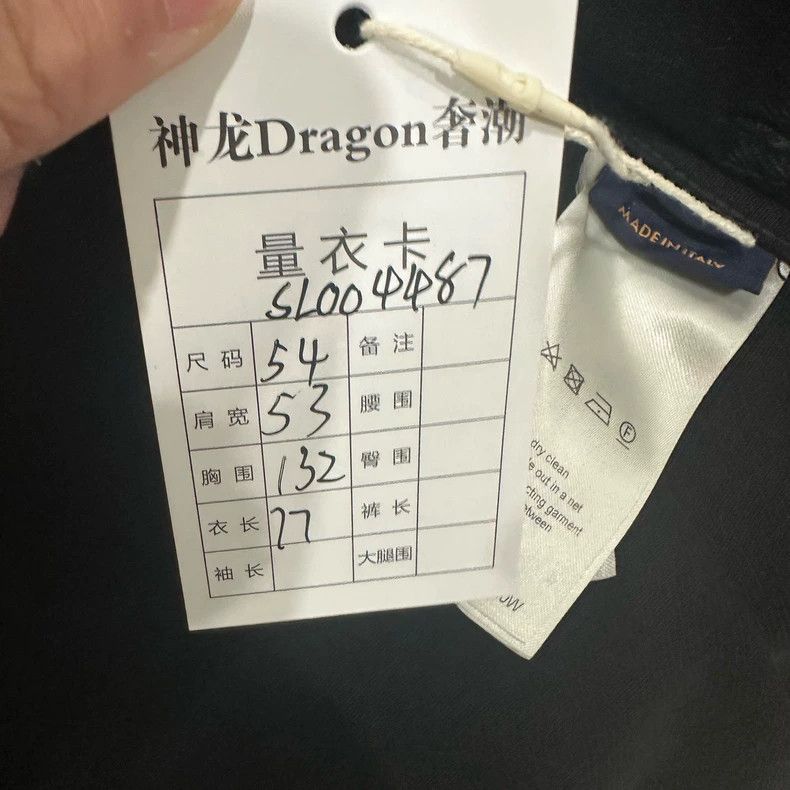 神龙Dragon奢潮
量衣卡
SL004487
尺码 54 备注
肩宽 53 腰围
胸围 132 臀围
衣长 77 裤长
袖长 大腿围
MADE IN ITALY
F
dry clean
out in a net
cting garment